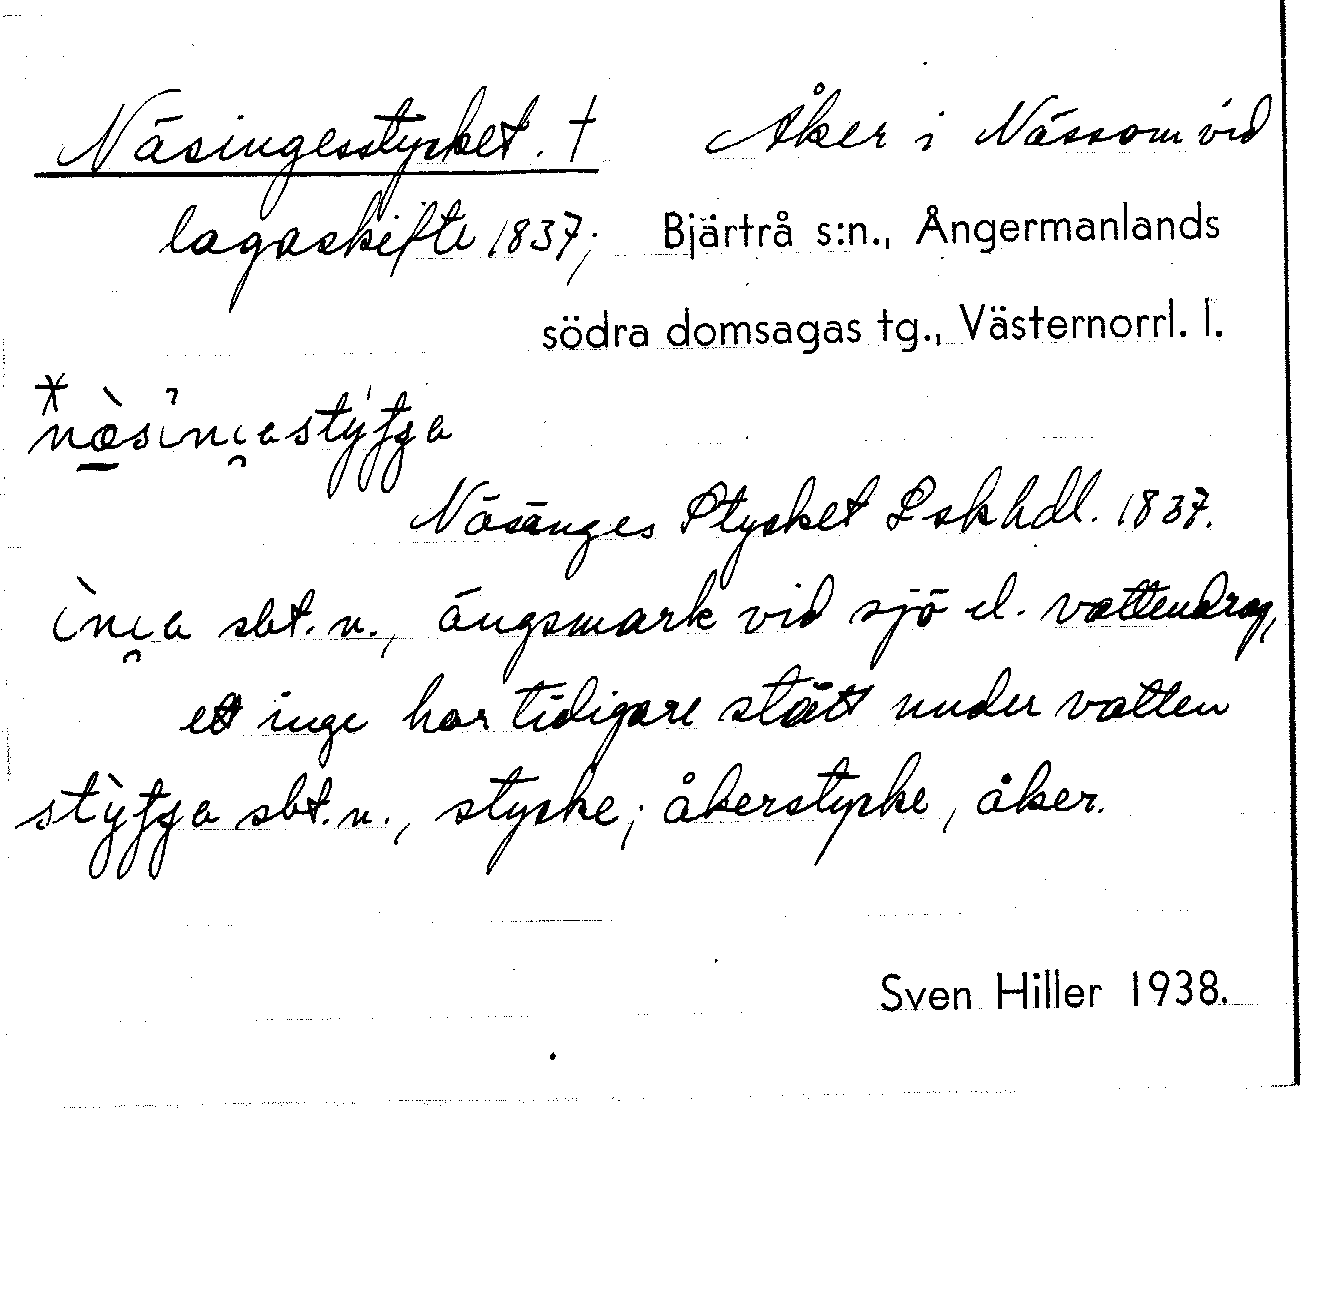 Näsingesstycket. † Åker i Nässom vid
lagaskifte 1837; Bjärtrå s:n., Ångermanlands
södra domsagas tg., Västernorrl. l.
Näsänges Stycket Lskhdl. 1837.
sbt. n., ängsmark vid sjö el. vattendrag,
ett inge har tidigare stått under vatten
sbt. n., stycke; åkerstycke, åker.
Sven Hiller 1938.